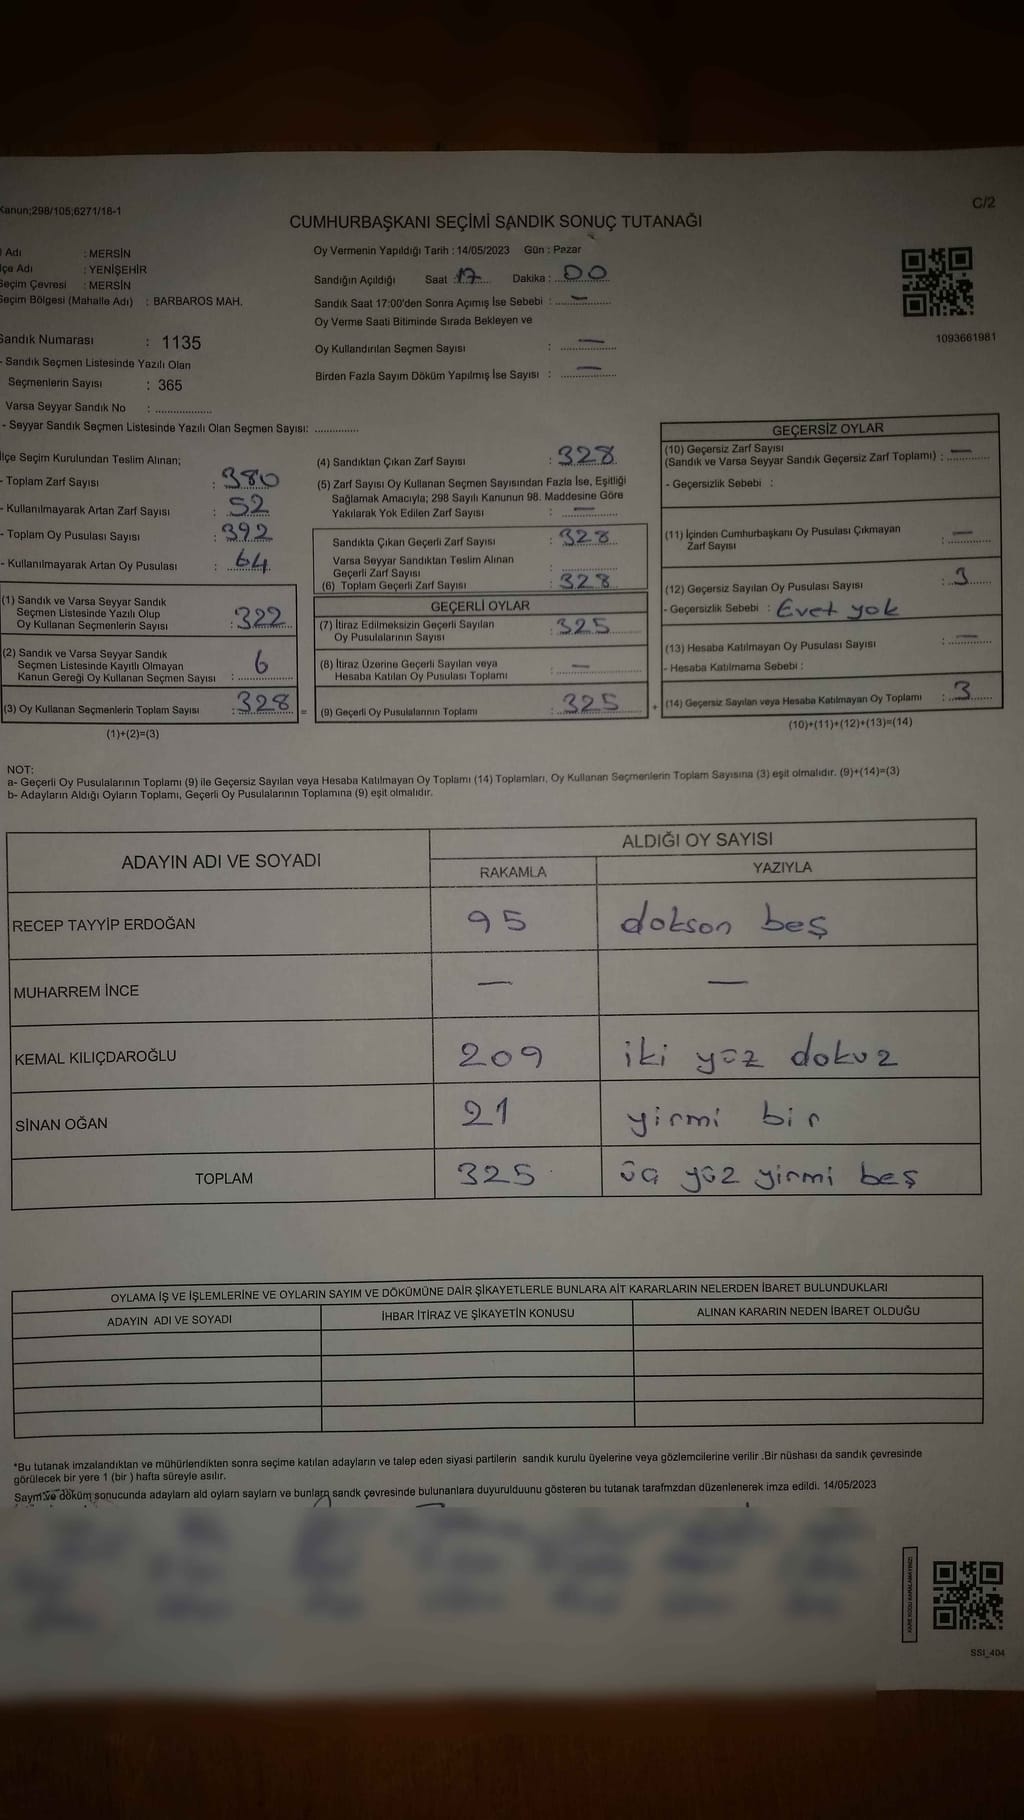 Kanun;298/105;6271/16-1
C/2
CUMHURBAŞKANI SEÇİMİ SANDIK SONUÇ TUTANAĞI
Adı : MERSİN
çe Adı : YENİŞEHİR
Seçim Çevresi : MERSİN
Seçim Bölgesi (Mahalle Adı) : BARBAROS MAH.
Sandık Numarası : 1135
- Sandık Seçmen Listesinde Yazılı Olan
Seçmenlerin Sayısı : 365
Varsa Seyyar Sandık No : ..................
- Seyyar Sandık Seçmen Listesinde Yazılı Olan Seçmen Sayısı: ..............
Oy Vermenin Yapıldığı Tarih : 14/05/2023 Gün : Pazar
Sandığın Açıldığı Saat : 17 Dakika : 00
Sandık Saat 17:00'den Sonra Açımış İse Sebebi : —
Oy Verme Saati Bitiminde Sırada Bekleyen ve
Oy Kullandırılan Seçmen Sayısı : —
Birden Fazla Sayım Döküm Yapılmış İse Sayısı : —
1093661981
İlçe Seçim Kurulundan Teslim Alınan;
- Toplam Zarf Sayısı : 380
- Kullanılmayarak Artan Zarf Sayısı : 52
- Toplam Oy Pusulası Sayısı : 392
- Kullanılmayarak Artan Oy Pusulası : 64
(1) Sandık ve Varsa Seyyar Sandık
Seçmen Listesinde Yazılı Olup
Oy Kullanan Seçmenlerin Sayısı : 322
(2) Sandık ve Varsa Seyyar Sandık
Seçmen Listesinde Kayıtlı Olmayan
Kanun Gereği Oy Kullanan Seçmen Sayısı : 6
(3) Oy Kullanan Seçmenlerin Toplam Sayısı : 328 =
(1)+(2)=(3)
(4) Sandıktan Çıkan Zarf Sayısı : 328
(5) Zarf Sayısı Oy Kullanan Seçmen Sayısından Fazla İse, Eşitliği
Sağlamak Amacıyla; 298 Sayılı Kanunun 98. Maddesine Göre
Yakılarak Yok Edilen Zarf Sayısı : —
Sandıkta Çıkan Geçerli Zarf Sayısı : 328
Varsa Seyyar Sandıktan Teslim Alınan
Geçerli Zarf Sayısı : ..............
(6) Toplam Geçerli Zarf Sayısı : 328
GEÇERLİ OYLAR
(7) İtiraz Edilmeksizin Geçerli Sayılan
Oy Pusulalarının Sayısı : 325
(8) İtiraz Üzerine Geçerli Sayılan veya
Hesaba Katılan Oy Pusulası Toplamı : —
(9) Geçerli Oy Pusulalarının Toplamı : 325 +
GEÇERSİZ OYLAR
(10) Geçersiz Zarf Sayısı
(Sandık ve Varsa Seyyar Sandık Geçersiz Zarf Toplamı) : —
- Geçersizlik Sebebi :
(11) İçinden Cumhurbaşkanı Oy Pusulası Çıkmayan
Zarf Sayısı : —
(12) Geçersiz Sayılan Oy Pusulası Sayısı : 3
- Geçersizlik Sebebi : Evet yok
(13) Hesaba Katılmayan Oy Pusulası Sayısı : —
- Hesaba Katılmama Sebebi :
(14) Geçersiz Sayılan veya Hesaba Katılmayan Oy Toplamı : 3
(10)+(11)+(12)+(13)=(14)
NOT:
a- Geçerli Oy Pusulalarının Toplamı (9) ile Geçersiz Sayılan veya Hesaba Katılmayan Oy Toplamı (14) Toplamları, Oy Kullanan Seçmenlerin Toplam Sayısına (3) eşit olmalıdır. (9)+(14)=(3)
b- Adayların Aldığı Oyların Toplamı, Geçerli Oy Pusulalarının Toplamına (9) eşit olmalıdır.
ADAYIN ADI VE SOYADI ALDIĞI OY SAYISI
RAKAMLA YAZIYLA
RECEP TAYYİP ERDOĞAN 95 dokson beş
MUHARREM İNCE — —
KEMAL KILIÇDAROĞLU 209 iki yüz dokuz
SİNAN OĞAN 21 yirmi bir
TOPLAM 325 üç yüz yirmi beş
OYLAMA İŞ VE İŞLEMLERİNE VE OYLARIN SAYIM VE DÖKÜMÜNE DAİR ŞİKAYETLERLE BUNLARA AİT KARARLARIN NELERDEN İBARET BULUNDUKLARI
ADAYIN ADI VE SOYADI İHBAR İTİRAZ VE ŞİKAYETİN KONUSU ALINAN KARARIN NEDEN İBARET OLDUĞU
*Bu tutanak imzalandıktan ve mühürlendikten sonra seçime katılan adayların ve talep eden siyasi partilerin sandık kurulu üyelerine veya gözlemcilerine verilir .Bir nüshası da sandık çevresinde
görülecek bir yere 1 (bir ) hafta süreyle asılır.
Saym ve döküm sonucunda adaylarn ald oylarn saylarn ve bunlarn sandk çevresinde bulunanlara duyurulduunu gösteren bu tutanak tarafmzdan düzenlenerek imza edildi. 14/05/2023
KARE KODU KARALAMAYINIZ!
SSI_404